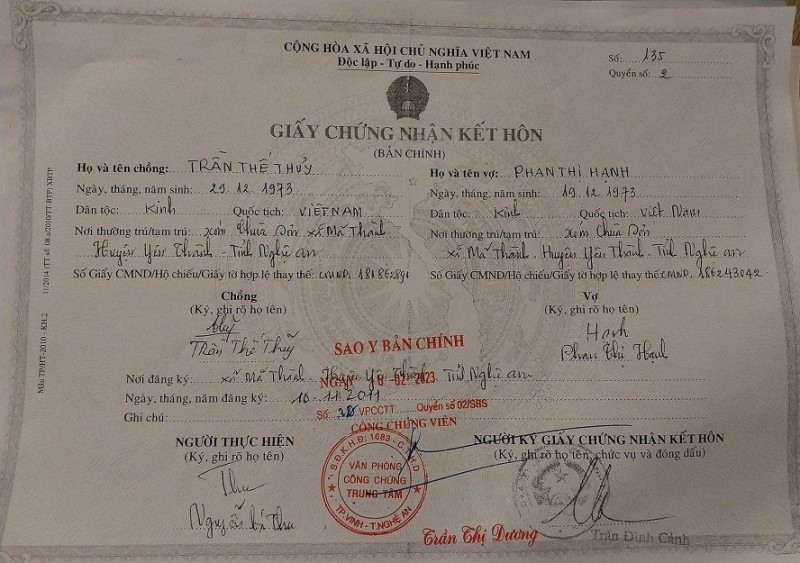 CỘNG HÒA XÃ HỘI CHỦ NGHĨA VIỆT NAM
Độc lập - Tự do - Hạnh phúc
Số: 135
Quyển số: 2
GIẤY CHỨNG NHẬN KẾT HÔN
(BẢN CHÍNH)
Họ và tên chồng: TRẦN THẾ THỦY
Ngày, tháng, năm sinh: 29.12.1973
Dân tộc: Kinh Quốc tịch: VIỆT NAM
Nơi thường trú/tạm trú: xóm Chùa Sơn xã Mã Thành
Huyện Yên Thành - Tỉnh Nghệ an
Số Giấy CMND/Hộ chiếu/Giấy tờ hợp lệ thay thế: CMND.
Họ và tên vợ: PHAN THỊ HẠNH
Ngày, tháng, năm sinh: 19.12.1973
Dân tộc: Kinh Quốc tịch: Việt Nam
Nơi thường trú/tạm trú: Xóm Chùa Sơn
xã Mã Thành. Huyện Yên Thành. Tỉnh Nghệ an
Số Giấy CMND/Hộ chiếu/Giấy tờ hợp lệ thay thế: CMND. 186243042
Chồng
(Ký, ghi rõ họ tên)
Thuỷ
Trần Thế Thuỷ
Vợ
(Ký, ghi rõ họ tên)
Hạnh
Phan Thị Hạnh
SAO Y BẢN CHÍNH
Nơi đăng ký: xã Mã Thành - Huyện Yên Thành. Tỉnh Nghệ an
NGÀY 18-02-2023
Ngày, tháng, năm đăng ký: 10.11.2011
Ghi chú:
Số: VPCCTT Quyển số 02/SBS
CÔNG CHỨNG VIÊN
NGƯỜI THỰC HIỆN
(Ký, ghi rõ họ tên)
Thu
Nguyễn Bá Thu
S.Đ.K.H.Đ: 1683 - C.T.H.D
VĂN PHÒNG
CÔNG CHỨNG
TRUNG TÂM
TP.VINH - T.NGHỆ AN
NGƯỜI KÝ GIẤY CHỨNG NHẬN KẾT HÔN
(Ký, ghi rõ họ tên, chức vụ và đóng dấu)
Trần Thị Dương
Trần Đình Cảnh
Mẫu TP/HT-2010 - KH.2
11/2014 (TT số 08.a/2010/TT-BTP) XBTP